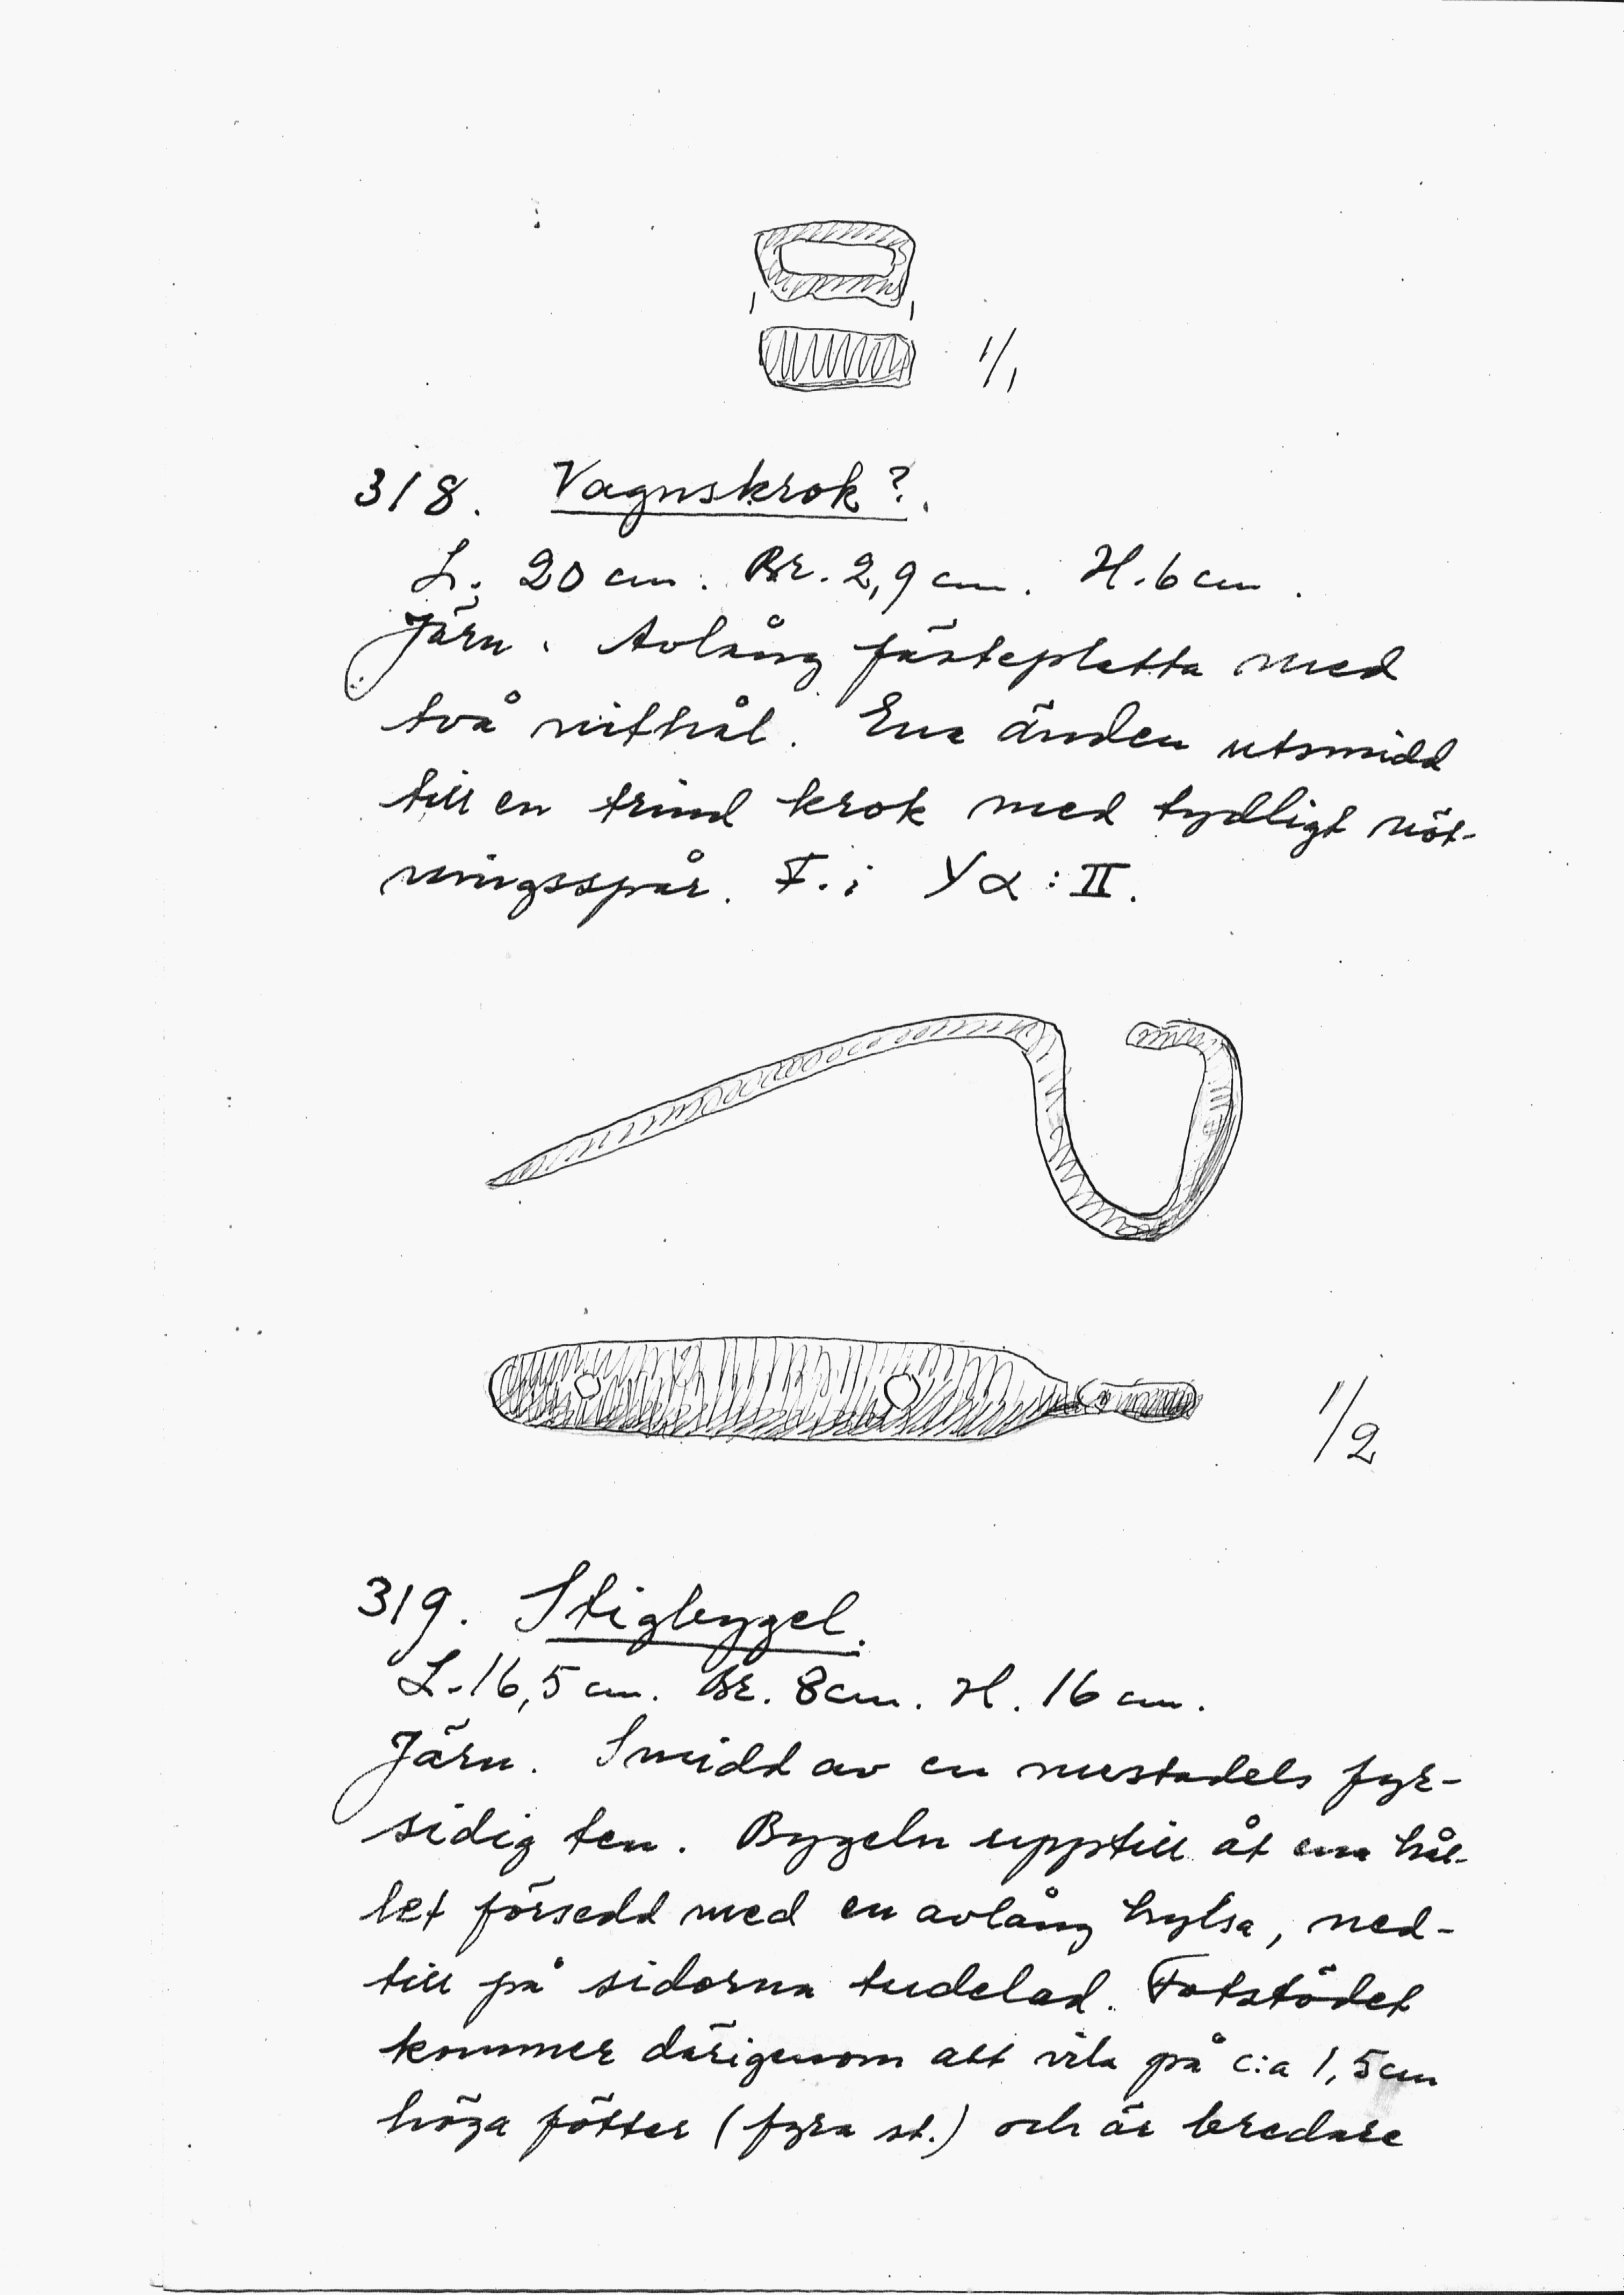 1/1
318. Vagnskrok?.
L. 20 cm. Br. 2,9 cm. H. 6 cm.
Järn. Avlång fästeplatta med
två nithål. Ena änden utsmidd
till en trind krok med tydligt nöt-
ningsspår. F. i Yα:II.
1/2
319. Stigbygel.
L. 16,5 cm. Br. 8 cm. H. 16 cm.
Järn. Smidd av en mestadels fyr-
sidig ten. Bygeln upptill åt ena hål-
let försedd med en avlång hylsa, ned-
till på sidorna tudelad. Fotstödet
kommer därigenom att vila på c:a 1,5 cm
höga fötter (fyra st.) och är bredare